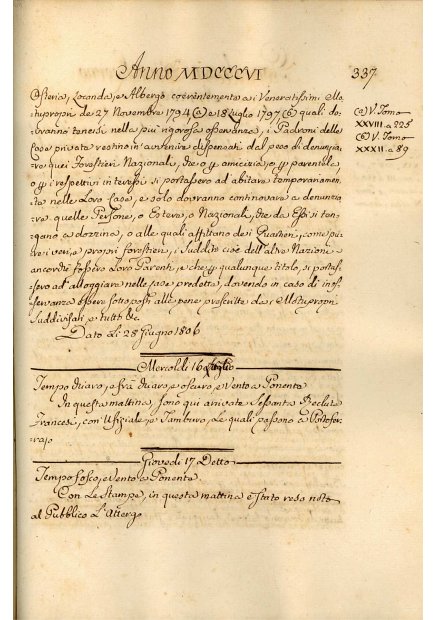 Anno MDCCCVI
337
Osteria, Locanda, e Albergo coerentemente a i Veneratissimi Mo-
tupropri de 27 Novembre 1794 (a) e 18 Luglio 1797 (b) quali do-
vranno tenersi nella più rigorosa osservanza, i Padroni delle
Case private restino in avvenire dispensati dal peso di denunzia-
re quei Forestieri Nazionali, che o p amicizia, o p parentela,
o p i respettivi interessi si portassero ad abitare temporariamen-
te nelle Loro Case, e solo dovranno continovare a denunzia-
re quelle Persone, o Estere, o Nazionali, che da Essi si ten-
gano a dozzina, o alle quali affittano dei Quartieri, come pu-
re i veri, e propri forestieri, i Sudditi cioè dell'altre Nazioni
ancorché fossero Loro Parenti, e che p qualunque titolo, si portas-
sero ad alloggiare nelle case predette, dovendo in caso di inos-
servanza essere sottoposti alle pene prescritte da i Motupropri
suddivisati e tutto &c.
Dato Li 28 Giugno 1806
(a) V. Tomo
XXVIII. a 225
(b) V. Tomo
XXXII. a 89
Mercoldì 16 Luglio
Tempo chiaro, a frà chiaro, e oscuro, e Vento a Ponente
In questa mattina, sono qui arrivate sessanta Reclute
Francesi, con Ufiziale, e Tamburo, Le quali passono a Portofer-
rajo
Giovedì 17 Detto
Tempo fosco, e Vento a Ponente
Con Le Stampe, in questa mattina è stato reso noto
al Pubblico L'Appresso